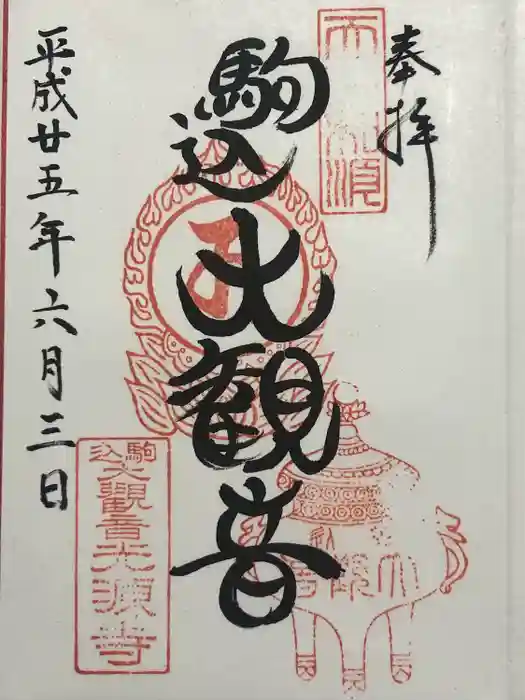 奉拝
駒込大観音
平成廿五年六月三日
駒込
大觀音光源寺
大観音